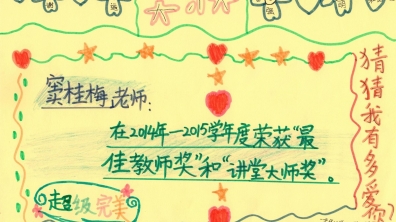 窦桂梅老师:
在2014年—2015学年度荣获“最
佳教师奖”和“讲堂大师奖”。
超级完美
猜猜我有多爱你?